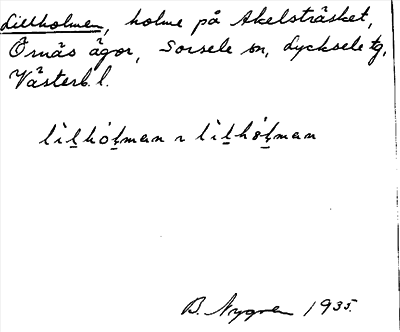 Lillholmen, holme på Akelsträsket,
Örnäs ägor, Sorsele sn, Lycksele tg,
Västerb. l.
lìl̲hól̲man ~ lìl̲hól̲man
B. Nygren 1935.